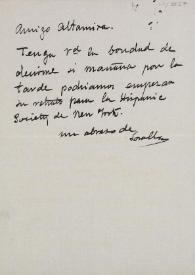 Amigo Altamira.
Tenga Vd la bondad de
decirme si mañana por la
tarde podriamos empezar
su retrato para la Hispanic
Society de New York.
un abrazo de
Sorolla